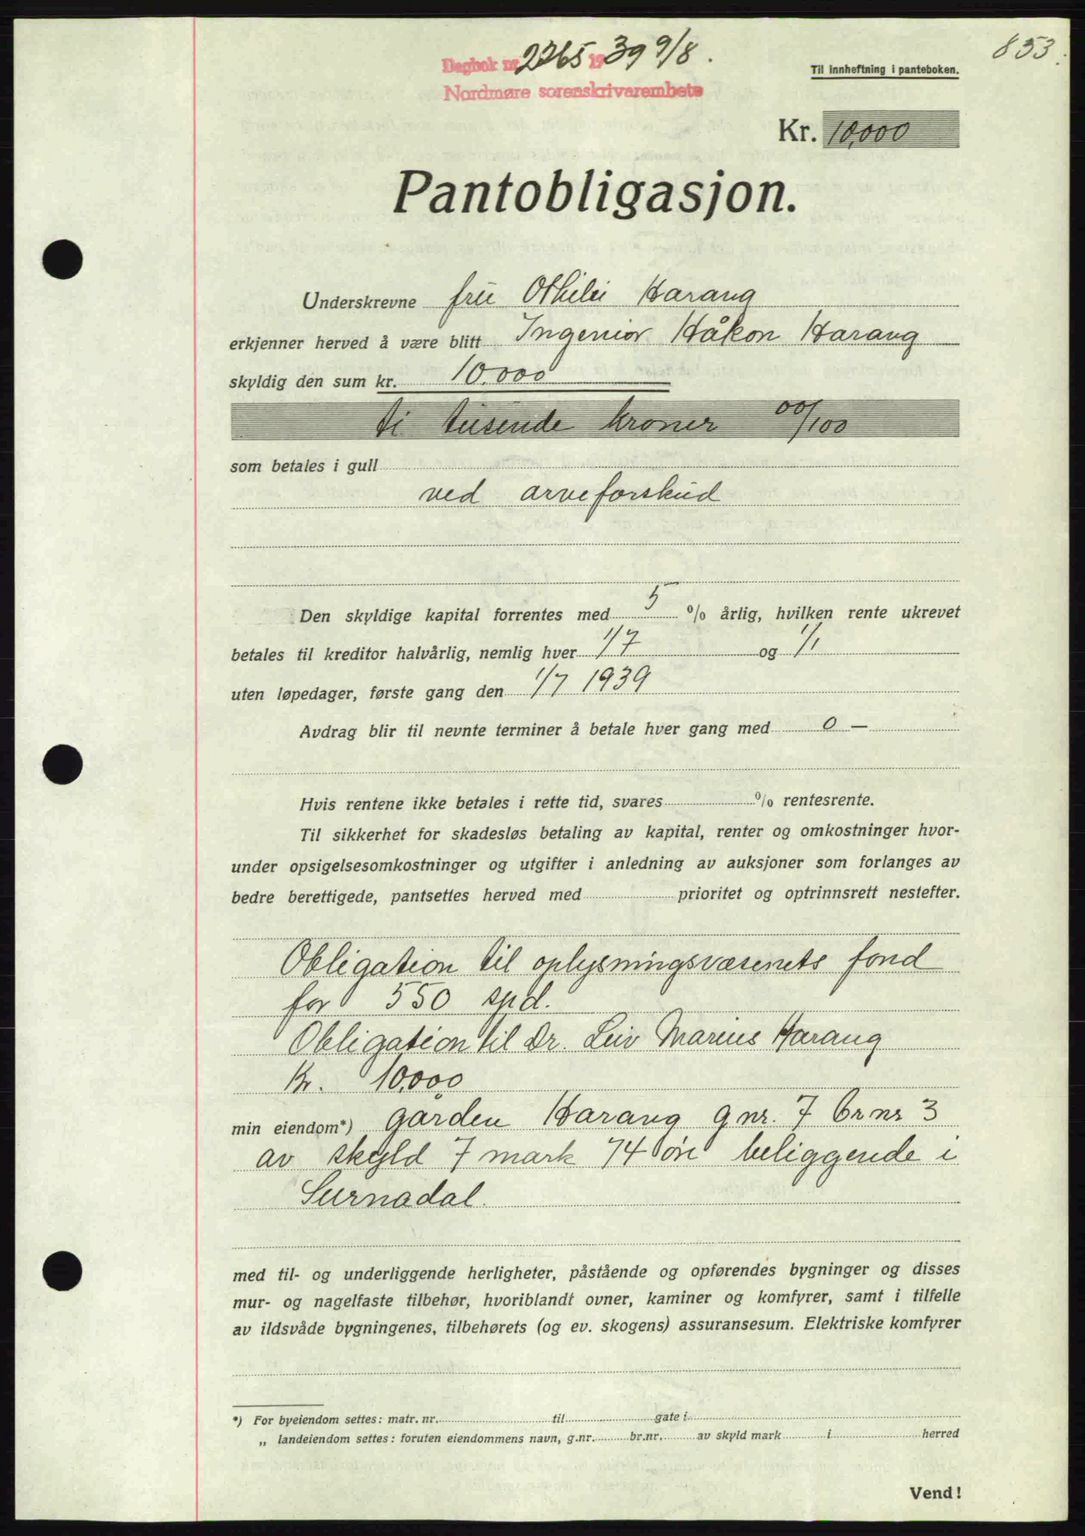 853.
Dagbok nr. 2265 1939 9/8.
Nordmøre sorenskriverembete
Til innheftning i panteboken.
Kr. 10,000
Pantobligasjon.
Underskrevne fru Othilie Harang
erkjenner herved å være blitt Ingeniør Håkon Harang
skyldig den sum kr. 10.000
ti tusende kroner 00/100
som betales i gull
ved arveforskud
Den skyldige kapital forrentes med 5 % årlig, hvilken rente ukrevet
betales til kreditor halvårlig, nemlig hver 1/7 og 1/1
uten løpedager, første gang den 1/7 1939
Avdrag blir til nevnte terminer å betale hver gang med 0 —
Hvis rentene ikke betales i rette tid, svares % rentesrente.
Til sikkerhet for skadesløs betaling av kapital, renter og omkostninger hvor-
under opsigelsesomkostninger og utgifter i anledning av auksjoner som forlanges av
bedre berettigede, pantsettes herved med prioritet og optrinnsrett nestefter.
Obligation til oplysningsvæsenets fond
for 550 spd.
Obligation til Dr. Leiv Marius Harang
Kr. 10,000
min eiendom*) gården Harang gnr. 7 brnr 3
av skyld 7 mark 74 øre beliggende i
Surnadal.
med til- og underliggende herligheter, påstående og opførendes bygninger og disses
mur- og nagelfaste tilbehør, hvoriblandt ovner, kaminer og komfyrer, samt i tilfelle
av ildsvåde bygningenes, tilbehørets (og ev. skogens) assuransesum. Elektriske komfyrer
*) For byeiendom settes: matr. nr. til gate i
„ landeiendom settes: foruten eiendommens navn, g.nr. br.nr. av skyld mark i herred
Vend!